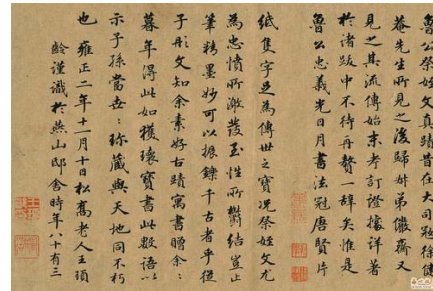 魯公祭姪文真蹟昔在大司寇徐健
菴先生所見之後歸姊弟儼齋又
見之其流傳始末考訂證據詳著
於諸跋中不待再贅一辭矣惟是
魯公忠義光日月書法冠唐賢片
紙隻字足為傳世之寶況祭姪文尤
為忠憤所激發至性所鬱結豈止
筆精墨妙可以振鑠千古者乎從
子彤文知余素好古蹟寓書贈余余
暮年得此如獲瓌寶書此數語以
示子孫當世世珍藏與天地同不朽
也 雍正二年十一月十日松喬老人王頊
齡謹識於燕山邸舍時年八十有三